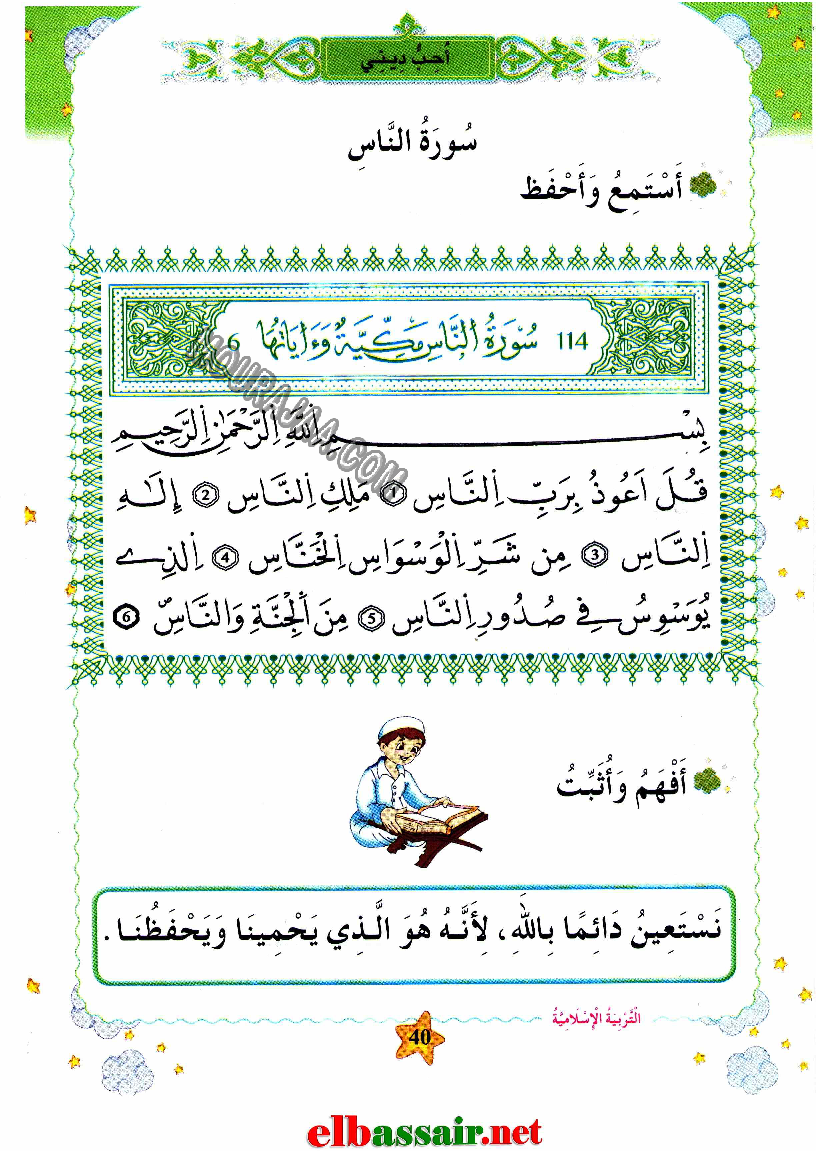 أحِبُّ دِينِي
سُورَةُ النَّاسِ
أَسْتَمِعُ وَأَحْفَظ
114 سُورَةُ النَّاسِ مَكِّيَّةٌ وَءَايَاتُهَا 6
بِسْمِ اِللَّهِ اِلرَّحْمَٰنِ اِلرَّحِيمِ
قُلَ اَعُوذُ بِرَبِّ اِلنَّاسِ 1 مَلِكِ اِلنَّاسِ 2 إِلَٰهِ
اِلنَّاسِ 3 مِن شَرِّ اِلْوَسْوَاسِ اِلْخَنَّاسِ 4 اِلذِے
يُوَسْوِسُ فِي صُدُورِ اِلنَّاسِ 5 مِنَ اَلْجِنَّةِ وَالنَّاسِ 6
أَفْهَمُ وَأُثَبِّتُ
نَسْتَعِينُ دَائِمًا بِاللَّهِ، لِأَنَّهُ هُوَ الَّذِي يَحْمِينَا وَيَحْفَظُنَا.
التَّرْبِيَةُ الْإِسْلَامِيَّةُ
40
elbassair.net